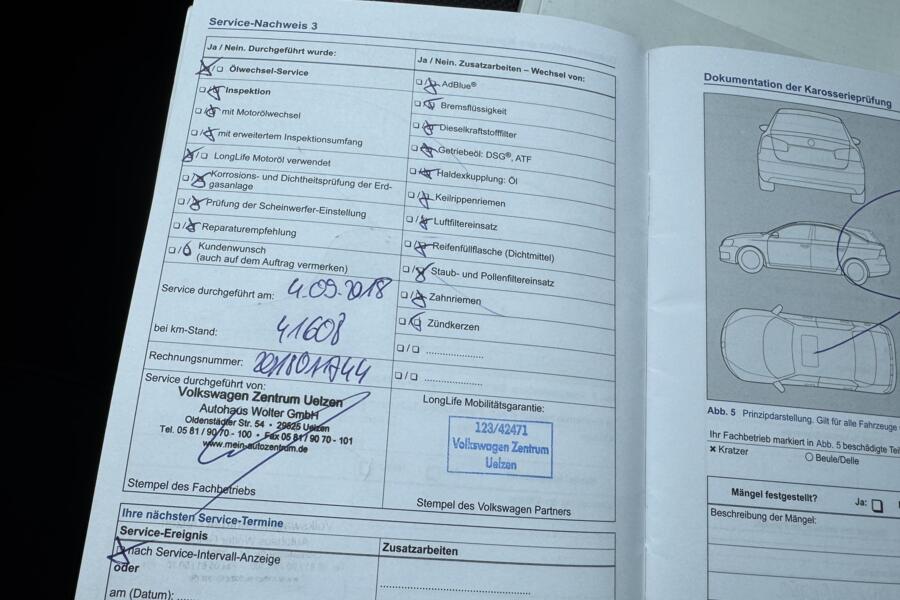 Service-Nachweis 3
Ja / Nein. Durchgeführt wurde:
Ölwechsel-Service
Inspektion
mit Motorölwechsel
mit erweitertem Inspektionsumfang
LongLife Motoröl verwendet
Korrosions- und Dichtheitsprüfung der Erd-
gasanlage
Prüfung der Scheinwerfer-Einstellung
Reparaturempfehlung
Kundenwunsch
(auch auf dem Auftrag vermerken)
Service durchgeführt am: 4.09.2018
bei km-Stand: 41608
Rechnungsnummer:
Service durchgeführt von:
Volkswagen Zentrum Uelzen
Autohaus Wolter GmbH
Oldenstädter Str. 54 • 29525 Uelzen
Tel. 05 81 / 90 70 - 100 • Fax 05 81 / 90 70 - 101
www.mein-autozentrum.de
Stempel des Fachbetriebs
Ja / Nein. Zusatzarbeiten – Wechsel von:
AdBlue®
Bremsflüssigkeit
Dieselkraftstofffilter
Getriebeöl: DSG®, ATF
Haldexkupplung: Öl
Keilrippenriemen
Luftfiltereinsatz
Reifenfüllflasche (Dichtmittel)
Staub- und Pollenfiltereinsatz
Zahnriemen
Zündkerzen
LongLife Mobilitätsgarantie:
123/42471
Volkswagen Zentrum
Uelzen
Stempel des Volkswagen Partners
Ihre nächsten Service-Termine
Service-Ereignis
Zusatzarbeiten
nach Service-Intervall-Anzeige
oder
am (Datum):
Dokumentation der Karosserieprüfung
Abb. 5 Prinzipdarstellung. Gilt für alle Fahrzeuge
Ihr Fachbetrieb markiert in Abb. 5 beschädigte
Kratzer
Beule/Delle
Mängel festgestellt?
Ja:
Beschreibung der Mängel: